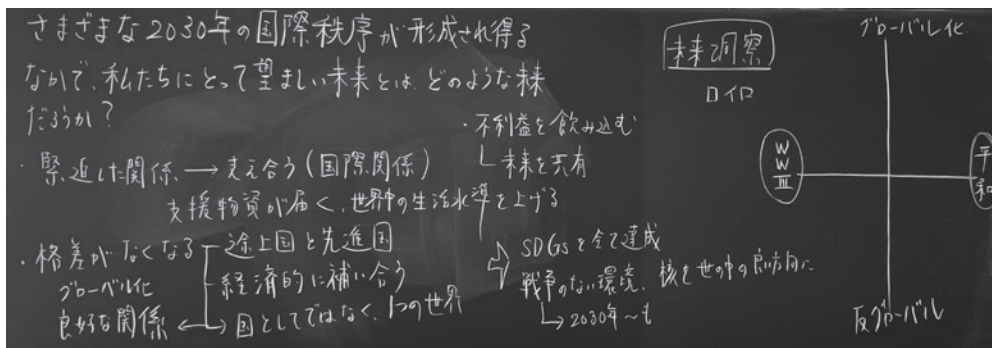 さまざまな2030年の国際秩序が形成され得る
なかで、私たちにとって望ましい未来とは、どのような未来
だろうか?
・緊迫した関係 → 支え合う(国際関係)
支援物資が届く、世界中の生活水準を上げる
・格差がなくなる
途上国と先進国
グローベル化
経済的に補い合う
良好な関係 ← 国としてではなく、1つの世界
・不利益を飲み込む
未来を共有
⇨ SDGsを全て達成
戦争のない環境、核を世の中の良い方向に
→ 2030年〜も
未来洞察
ロイロ
グローバル化
WWIII
平和
反グローバル